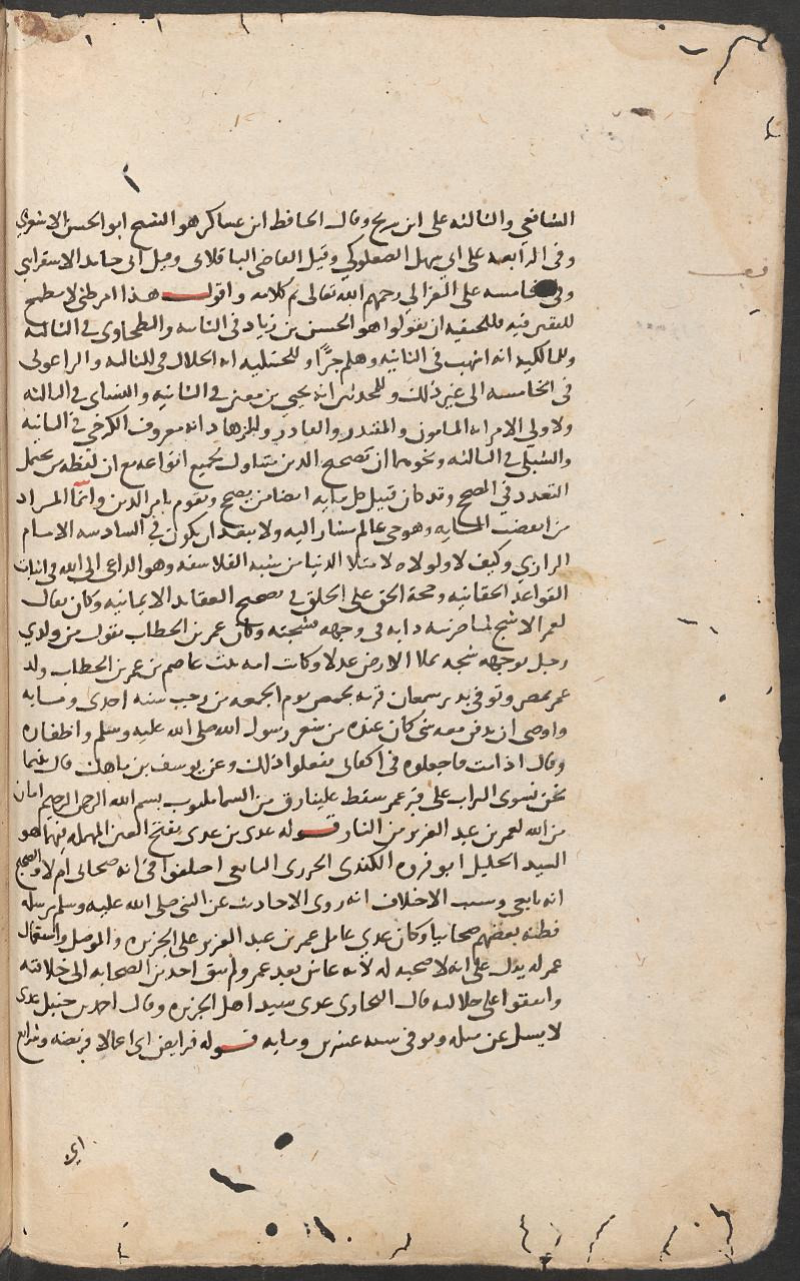 الشافعي والثالثه على ابن سريج وقال الحافظ ابن عساكر هو الشيخ ابو الحسن الاشعري
وفى الرابعه على ابى سهل الصعلوكي وقيل القاضى الباقلانى وقيل ابى حامد الاسفراينى
وفى الخامسه على الغزالي رحمهم الله تعالى تم كلامه واقول هذا امر ظنى لا مطمح
لليقين فيه فللحنفيه ان يقولوا هو الحسن بن زياد في الثانيه والطحاوى في الثالثه
وللمالكيه انه اشهب فى الثانيه وهلم جرًّا وللحنبليه انه الخلال فى الثالثه والراغونى
فى الخامسه الى غير ذلك وللمحدثين انه يحيى بن معين في الثانيه والنساى في الثالثه
ولاولي الامر انه المامون والمقتدر والقادر وللزهاد انه معروف الكرخي في الثانيه
والشبلى في الثالثه ونحوهما ان تصحيح الدين متناول لجميع انواعه مع ان لفظه من تحتمل
التعدد في المصحح وقد كان قبيل كل مايه ايضا من يصحح ويقوم بامر الدين وانما المراد
من انقضت المايه وهو حى عالم مشار اليه ولا يبعد ان يكون في السادسه الامام
الرازي وكيف لا ولولاه لامتلا الدنيا من شبه الفلاسفه وهو الداعى الى الله فى اثبات
القواعد الحقانيه وحجة الحق على الخلق في تصحيح العقايد الايمانيه وكان يقال
لعمر الاشج لما ضربته دابه فى وجهه فشجته وكان عمر بن الخطاب يقول من ولدي
رجل بوجهه شجه يملا الارض عدلا وكانت امه بنت عاصم بن عمر بن الخطاب ولد
عمر بمصر وتوفي بدير سمعان قريه بحمص يوم الجمعه من رجب سنه احدى ومايه
واوصى ان يدفن معه شى كان عنده من شعر رسول الله صلى الله عليه وسلم واظفاره
وقال اذا مت فاجعلوه فى اكفانى ففعلوا ذلك وعن يوسف بن ماهك قال بينما
نحن نسوى التراب على قبر عمر سقط علينا رق من السما مكتوب بسم الله الرحمن الرحيم امان
من الله لعمر بن عبد العزيز من النار قوله عدى بن عدى بفتح العين المهمله فيهما هو
السيد الجليل ابو فروه الكندى الجزرى التابعى اختلفوا فى انه صحابى ام لا والصحيح
انه تابعى وسبب الاختلاف انه روى الاحاديث عن النبى صلى الله عليه وسلم مرسله
فظنه بعضهم صحابيا وكان عدي عامل عمر بن عبد العزيز على الجزيره والموصل واستعمال
عمر له يدل على انه لا صحبه له لانه عاش بعد عمر ولم يبق احد من الصحابه الى خلافته
واتفقوا على جلالته قال البخارى عدى سيد اهل الجزيره وقال احمد بن حنبل عدى
لا يسل عن مثله وتوفى سنه عشرين ومايه قوله فرايض اى اعمالا فريضه وشرايع
اى